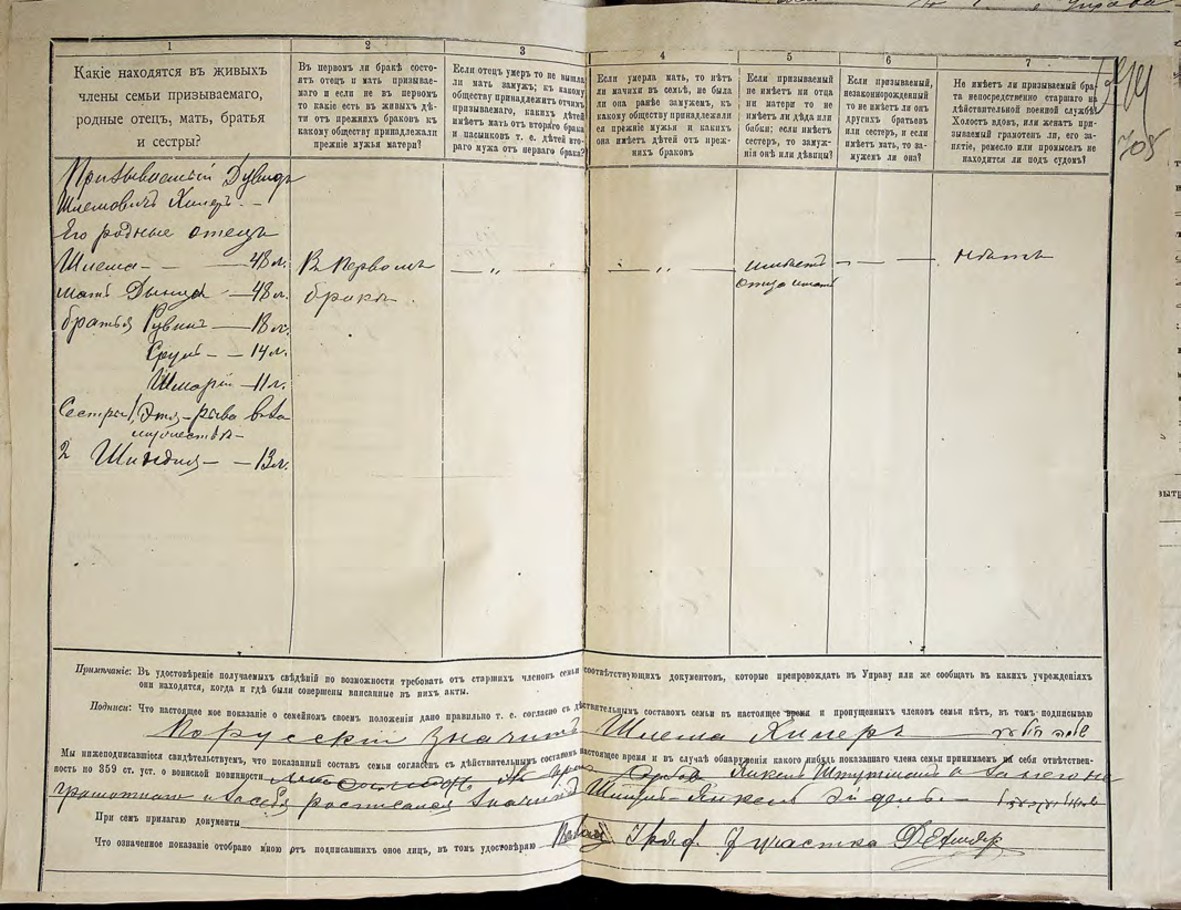 1
Какіе находятся въ живыхъ
члены семьи призываемаго,
родные отецъ, мать, братья
и сестры?
2
Въ первом ли бракѣ состо-
ятъ отецъ и мать призывае-
маго и если не въ первомъ
то какіе есть въ живыхъ дѣ-
ти отъ прежнихъ браковъ къ
какому обществу принадлежали
прежніе мужья матери?
3
Если отецъ умеръ то не вышла
ли мать замужъ; къ какому
обществу принадлежитъ отчимъ
призываемаго, какихъ дѣтей
имѣетъ мать отъ втораго брака
и пасынковъ т. е. дѣтей вто-
раго мужа отъ перваго брака?
4
Если умерла мать, то нѣтъ
ли мачихи въ семьѣ, не была
ли она ранѣе замужемъ, къ
какому обществу принадлежали
ея прежніе мужья и какихъ
она имѣетъ дѣтей отъ преж-
нихъ браковъ
5
Если призываемый
не имѣетъ ни отца
ни матери то не
имѣетъ ли дѣда или
бабки; если имѣетъ
сестеръ, то замуж-
нія онѣ или дѣвицы?
6
Если призываемый,
незаконорожденный
то не имѣетъ ли онъ
другихъ братьевъ
или сестеръ, и если
имѣетъ мать, то за-
мужемъ ли она?
7
Не имѣетъ ли призываемый бра-
та непосредственно старшаго на
дѣйствительной военной службѣ?
Холостъ вдовъ, или женатъ при-
зываемый грамотенъ ли, его за-
пятіе, ремесло или промыселъ не
находится ли подъ судомъ?
705
Призываемый Дувидъ
Шлемовичъ Хиперъ. -
Его родные отецъ
Шлема - - 48 л.
мать Двися - 48 л.
братья Рувинъ - 18 л.
Сруль - - 14 л.
Шмарій - 11 л.
Сестры 1, Этя-рива въ за
мужествѣ -
2 Шиндля - - 13 л.
Въ первомъ
бракѣ.
- „ -
- „ -
имѣетъ
отца и мать
- - -
нѣтъ
Примѣчаніе: Въ удостовѣреніе получаемыхъ свѣдѣній по возможности требовать отъ старшихъ членовъ семьи соотвѣтствующихъ документовъ, которые препровождать въ Управу или же сообщать въ какихъ учрежденіяхъ
они находятся, когда и гдѣ были совершены вписанные въ нихъ акты.
Подписи: Что настоящее мое показаніе о семейномъ своемъ положеніи дано правильно т. е. согласно съ дѣйствительнымъ составомъ семьи въ настоящее время и пропущенныхъ членовъ семьи нѣтъ, въ томъ подписываю
По русскій значитъ Шлема Хиперъ
Мы нижеподписавшіеся свидѣтельствуемъ, что показанный составъ семьи согласенъ съ дѣйствительнымъ составомъ въ настоящее время и въ случаѣ обнаруженія какого нибудь непоказаннаго члена семьи принимаемъ на себя отвѣтствен-
ность по 359 ст. уст. о воинской повинности Янкель а за него не
грамотнаго и за себя росписался Янкель
При семъ прилагаю документы
Что означенное показаніе отобрано мною отъ подписавшихъ оное лицъ, въ томъ удостовѣряю участка